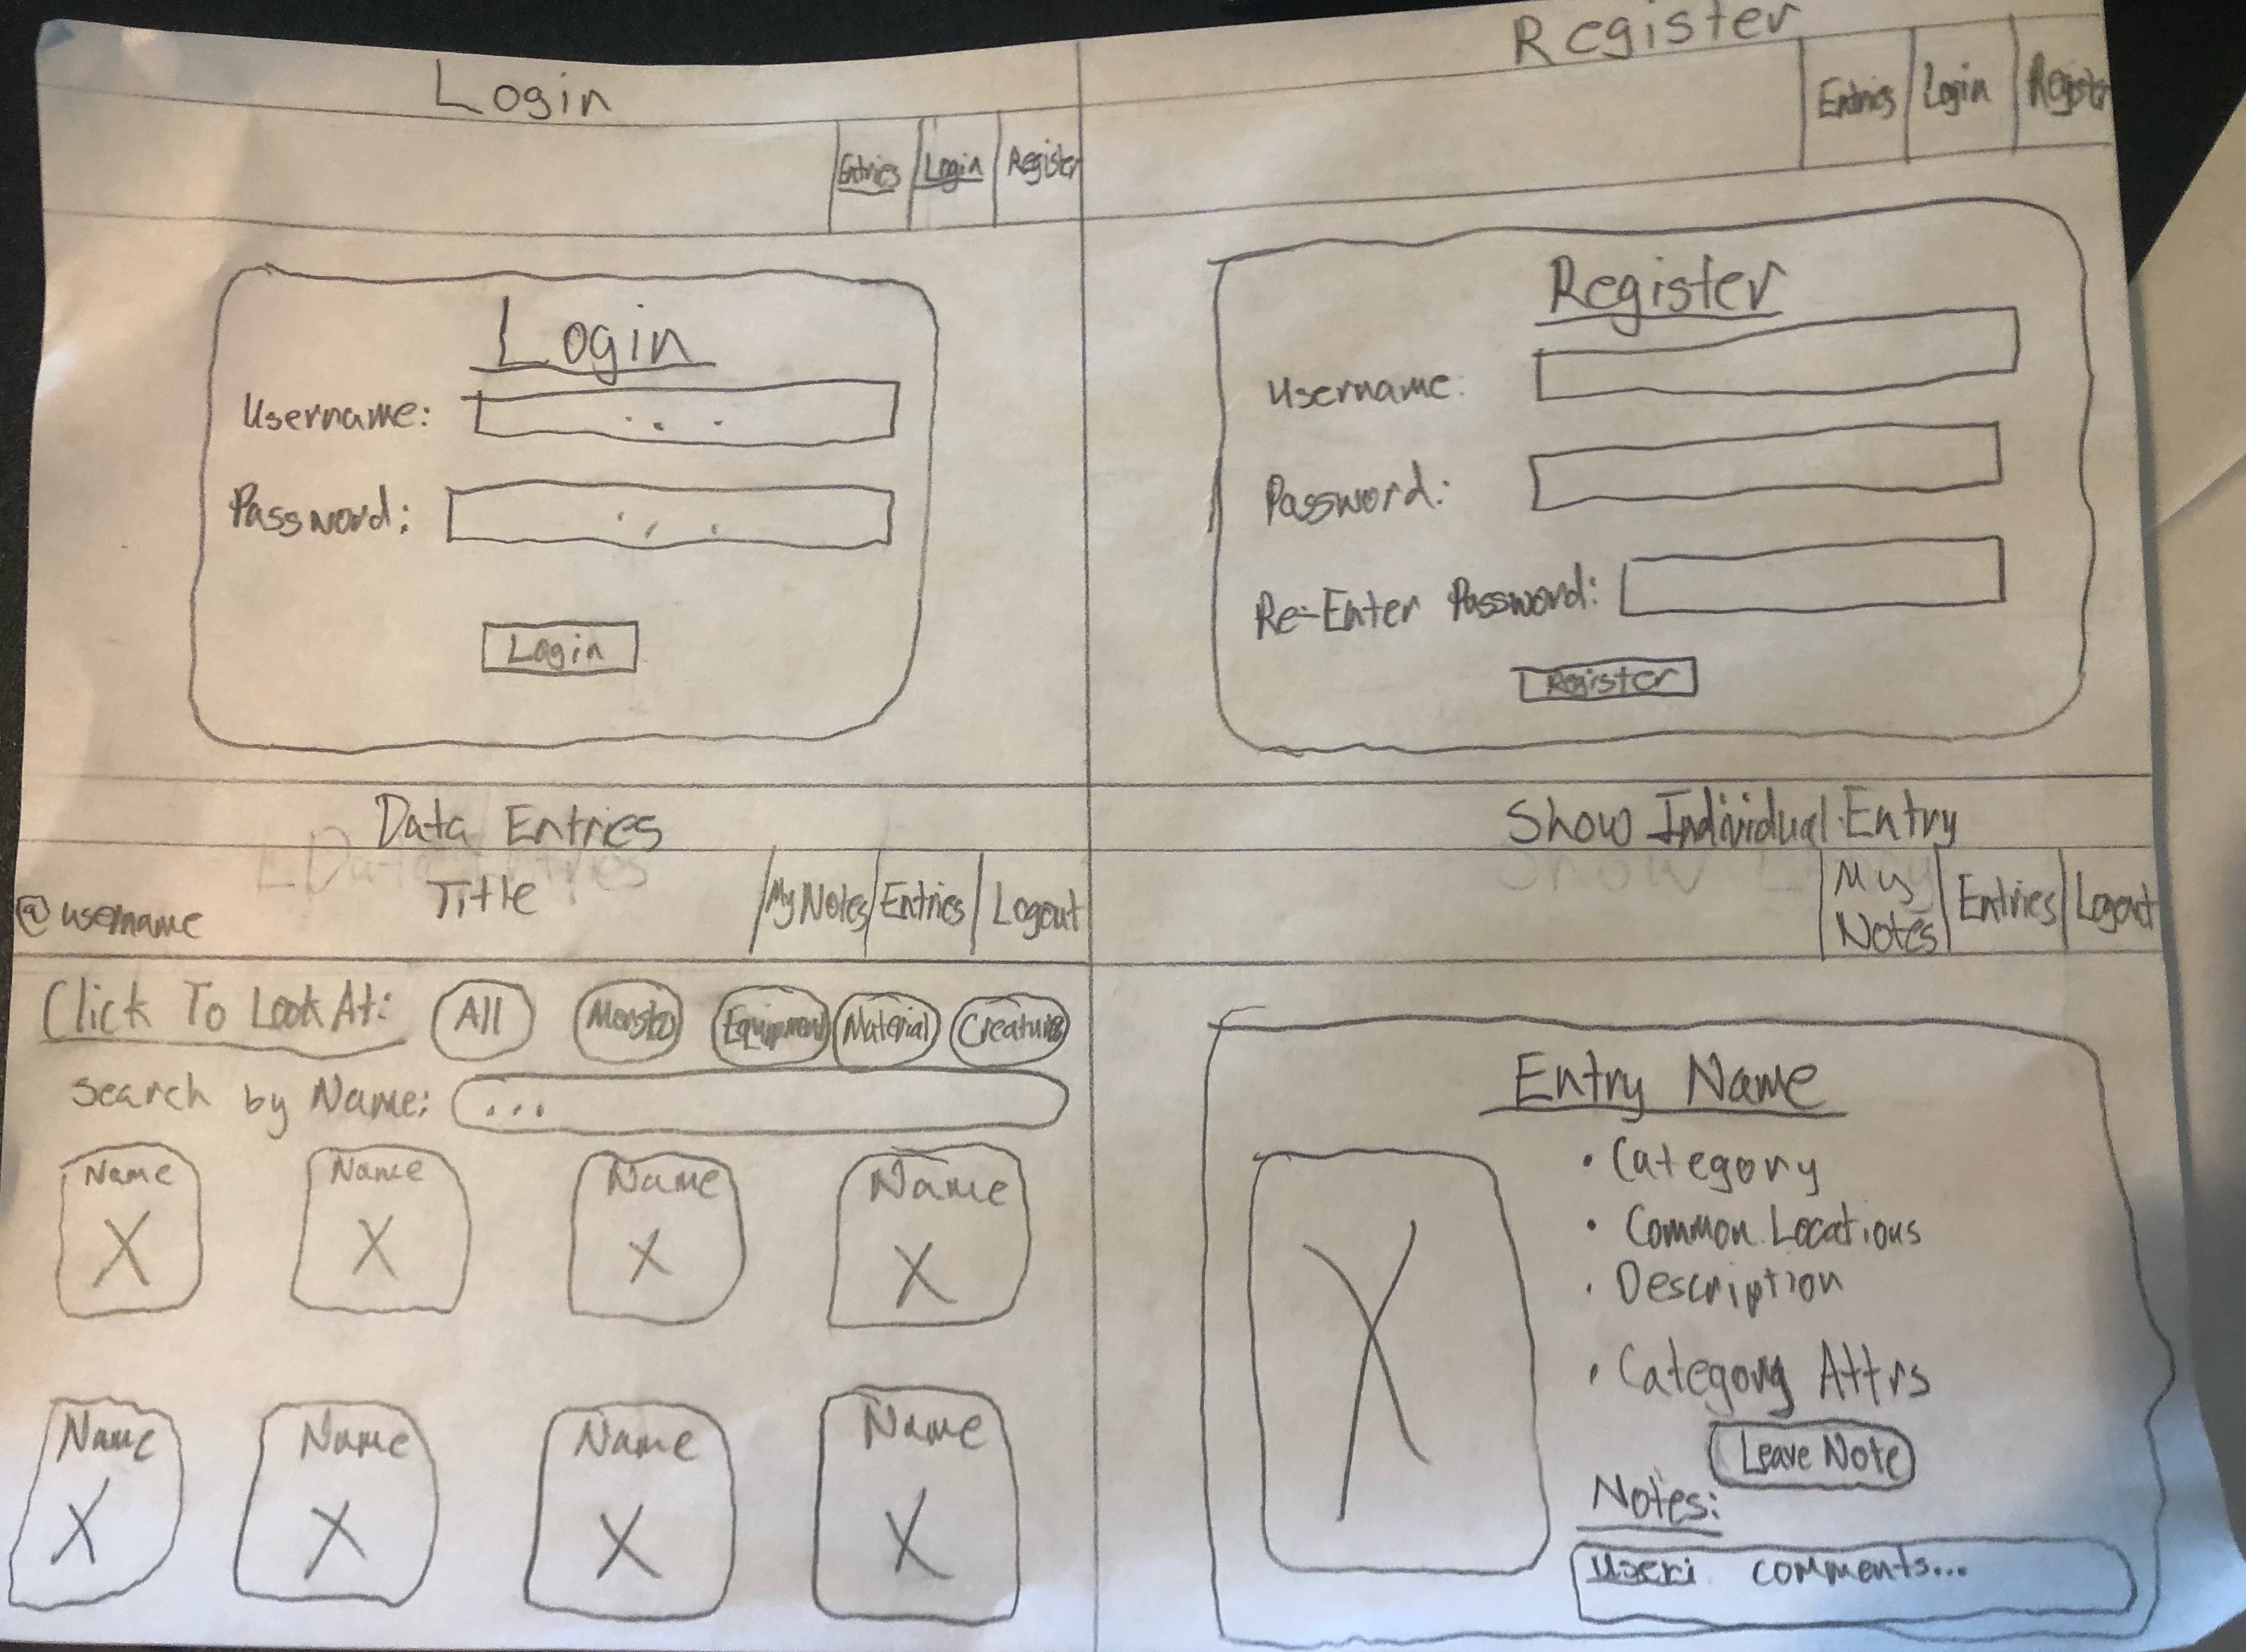 Login
Entries Login Register
Login
Username: . . .
Password: . . .
Login
Register
Entries Login Register
Register
Username:
Password:
Re-Enter Password:
Register
Data Entries
@username Title My Notes Entries Logout
Click To Look At: All Monster Equipment Material Creatures
Search by Name: ...
Name Name Name Name
X X X X
Name Name Name Name
X X X X
Show Individual Entry
My Notes Entries Logout
Entry Name
X
• Category
• Common Locations
• Description
• Category Attrs
Leave Note
Notes:
User: comments...